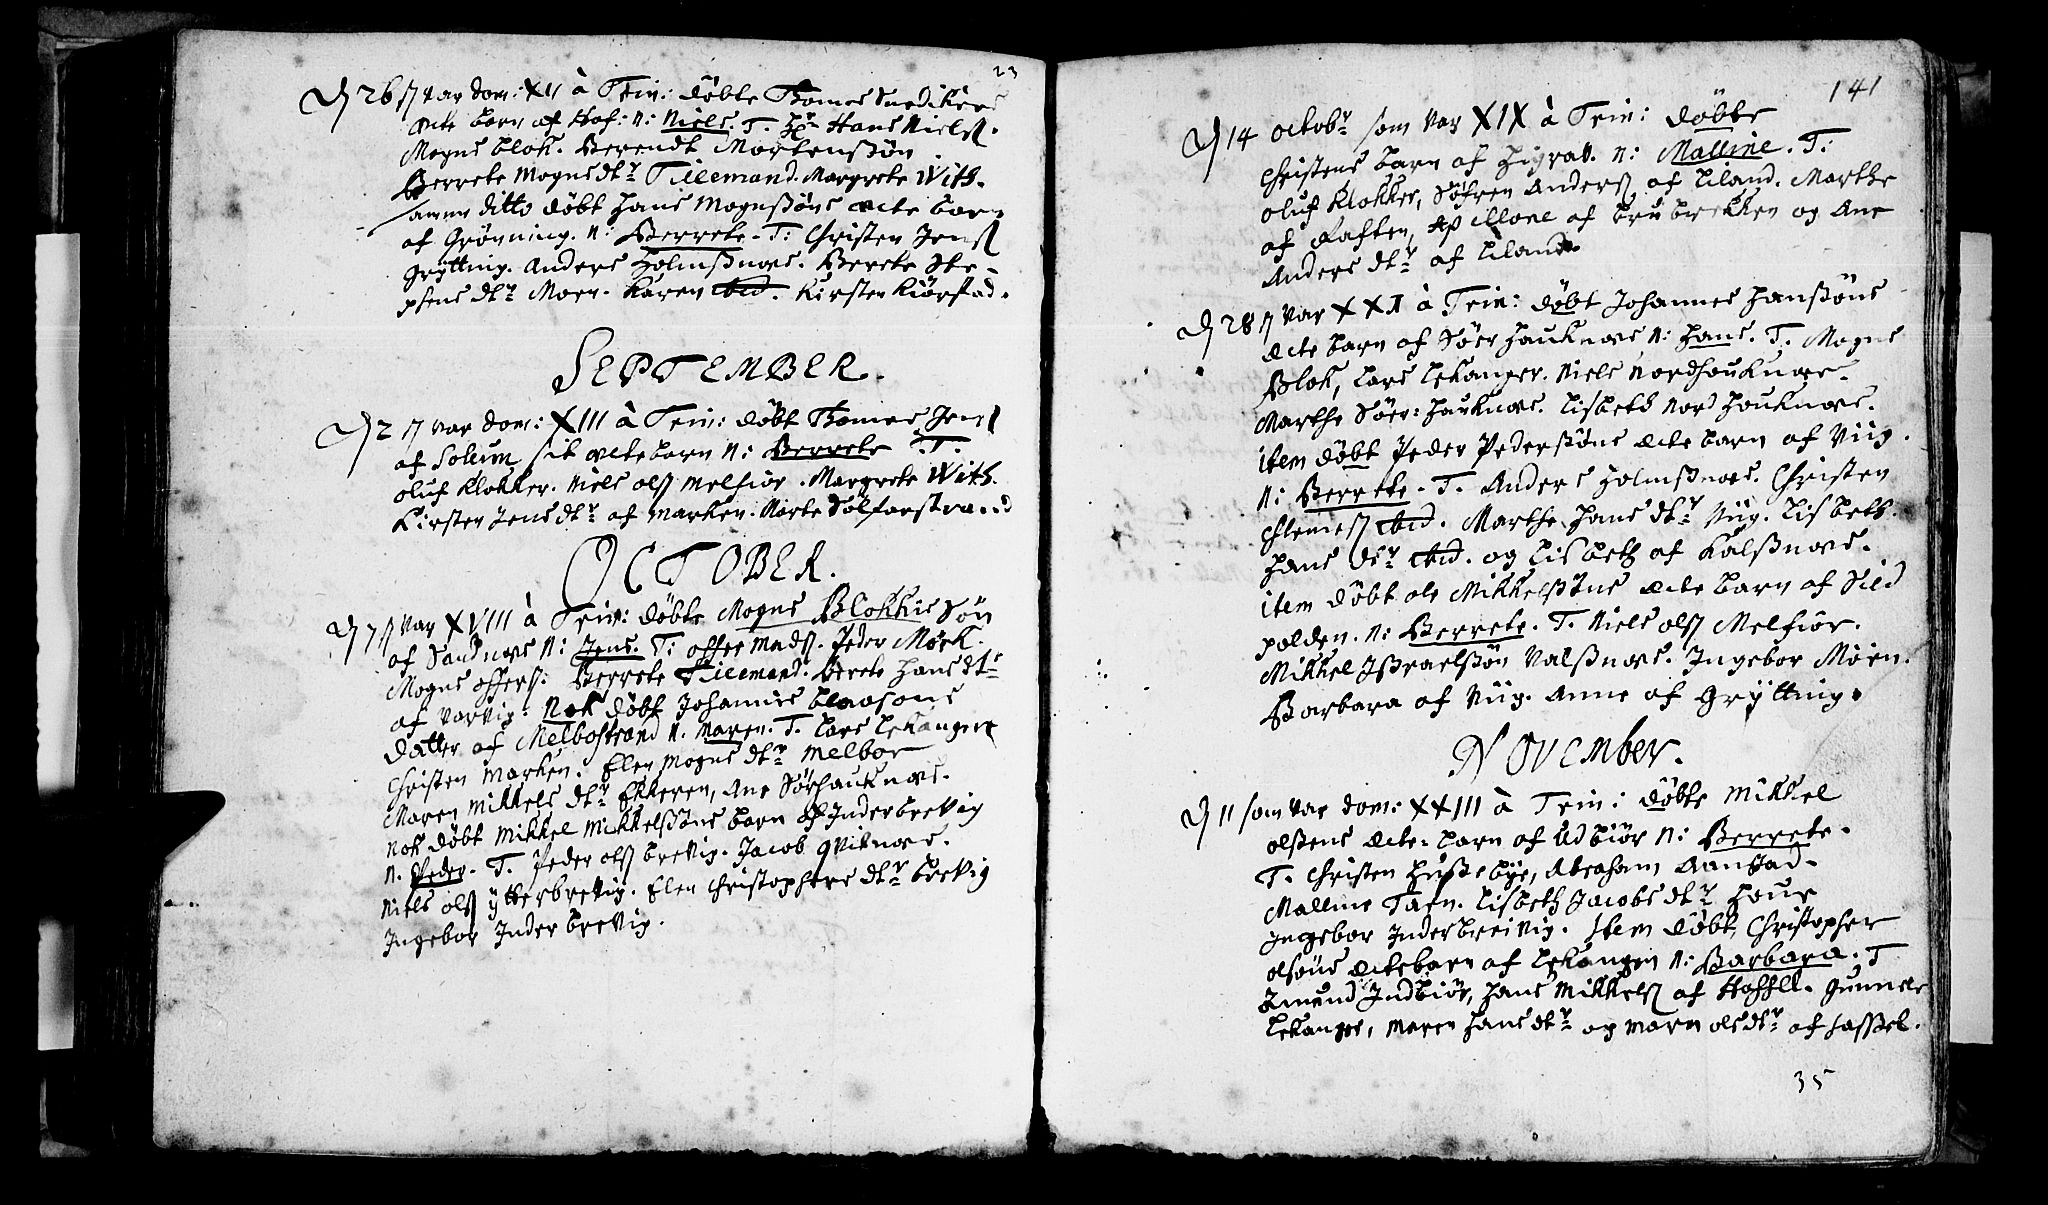 23
D 26 ⁊ var dom: XII à Trin: döbte Thomes Snedikers
ecte barn af Hof: N: Niels. T. Hr Hans Nielsß.
Mogns Blok. Berendt Mortensßön
Berrete Mogns dtr Tillemand. Margrete With.
samme ditto döbt Hans Mognsßöns ecte barn
af Grönning. N: Berrete. T: Christen Jensß
Grÿtting. Anders Holmsßnæs. Berete Ste-
phens dtr Moen. Karen ibid. Kirsten Kiörstad.
SEPTEMBER.
D 2 ⁊ var dom: XIII à Trin: döbt Thomes Jensß
af Soleim sit ectebarn N: Berrete T.
oluf Klokker. Niels olsß Melfior. Margrete With.
Kirsten Jens dtr af Marken. Marte Sölfarstrand
OCTOBER.
D 7 ⁊ var XVIII à Trin: döbte Mogns Blokkis Sön
af Sandnæs N: Jens. T: offer Madsß. Peder Mörk.
Mogns offersß: Berrete Tillemand. Berete Hans dtr
af Varvig: Nok döbt Johannes
datter af Melbostrand N. Maren. T. Lars Lekanger
Christen Marken. Elen Mogns dtr Melboe
Maren Mikkels dtr Ekkeren, Ane Sörhauknæs.
Nok döbt Mikkel Mikkelsßöns barn af Inderbrevig
N. Peder. T. Peder olsß brevig. Jacob qvitnæs.
Niels olsß ÿtterbrevig. Elen Christophers dtr brevig
Ingebor Inderbrevig.
141
D 14 octobr som var XIX à Trin: döbte
Christens barn af N: Malline. T:
oluf Klokker, Söfren Andersß af Liland. Marthe
af Raften, Mone af brubrekken og Ane
Anders dtr af Liland.
D 28 ⁊ var XXI à Trin: döbt Johannes Hansßöns
ecte barn af Söer Hauknæs N: Hans. T. Mogns
Blok, Lars Lekanger. Niels Nordhouknæs.
Marthe Söer: Hauknæs. Lisbeth Nord Houknæs.
item döbt Peder Pedersßöns ecte barn af Viig.
N: Berrete. T. Anders Holmsßnæs. Christen
Clemesß ibid. Marthe Hans dtr Viig. Lisbeth
Hans dtr ibid. og Lisbeth af Kalsßnæs.
item döbt ole Mikkelsßöns ecte barn af Sild
polden. N: Berrete. T. Niels olsß Melfiör.
Mikkel Isßraelsßön Valsßnæs. Ingebor Möen.
Barbara af Viig. Anne af Grÿtting.
November.
D 11 som var dom: XXIII à Trin: döbte Mikkel
olsßens ecte barn af Udbiör N: Berrete.
T. Christen Husßebÿe, Abraham Aanstad.
Malline Taen. Lisbeth Jacobs dtr Houe
Ingebor Inderbreivig. Item döbt Christopher
olsöns ectebarn af Lekangen N: Barbara. T
Amund Indbiör, Hans Mikkelsß af Hassell. Gunnele
Lekanger, Maren Hans dtr og Marn ols dtr af Hassel.
35